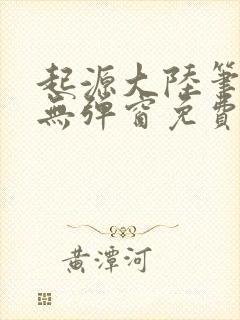 起源大陸筆
無彈窗免費
黃潭河